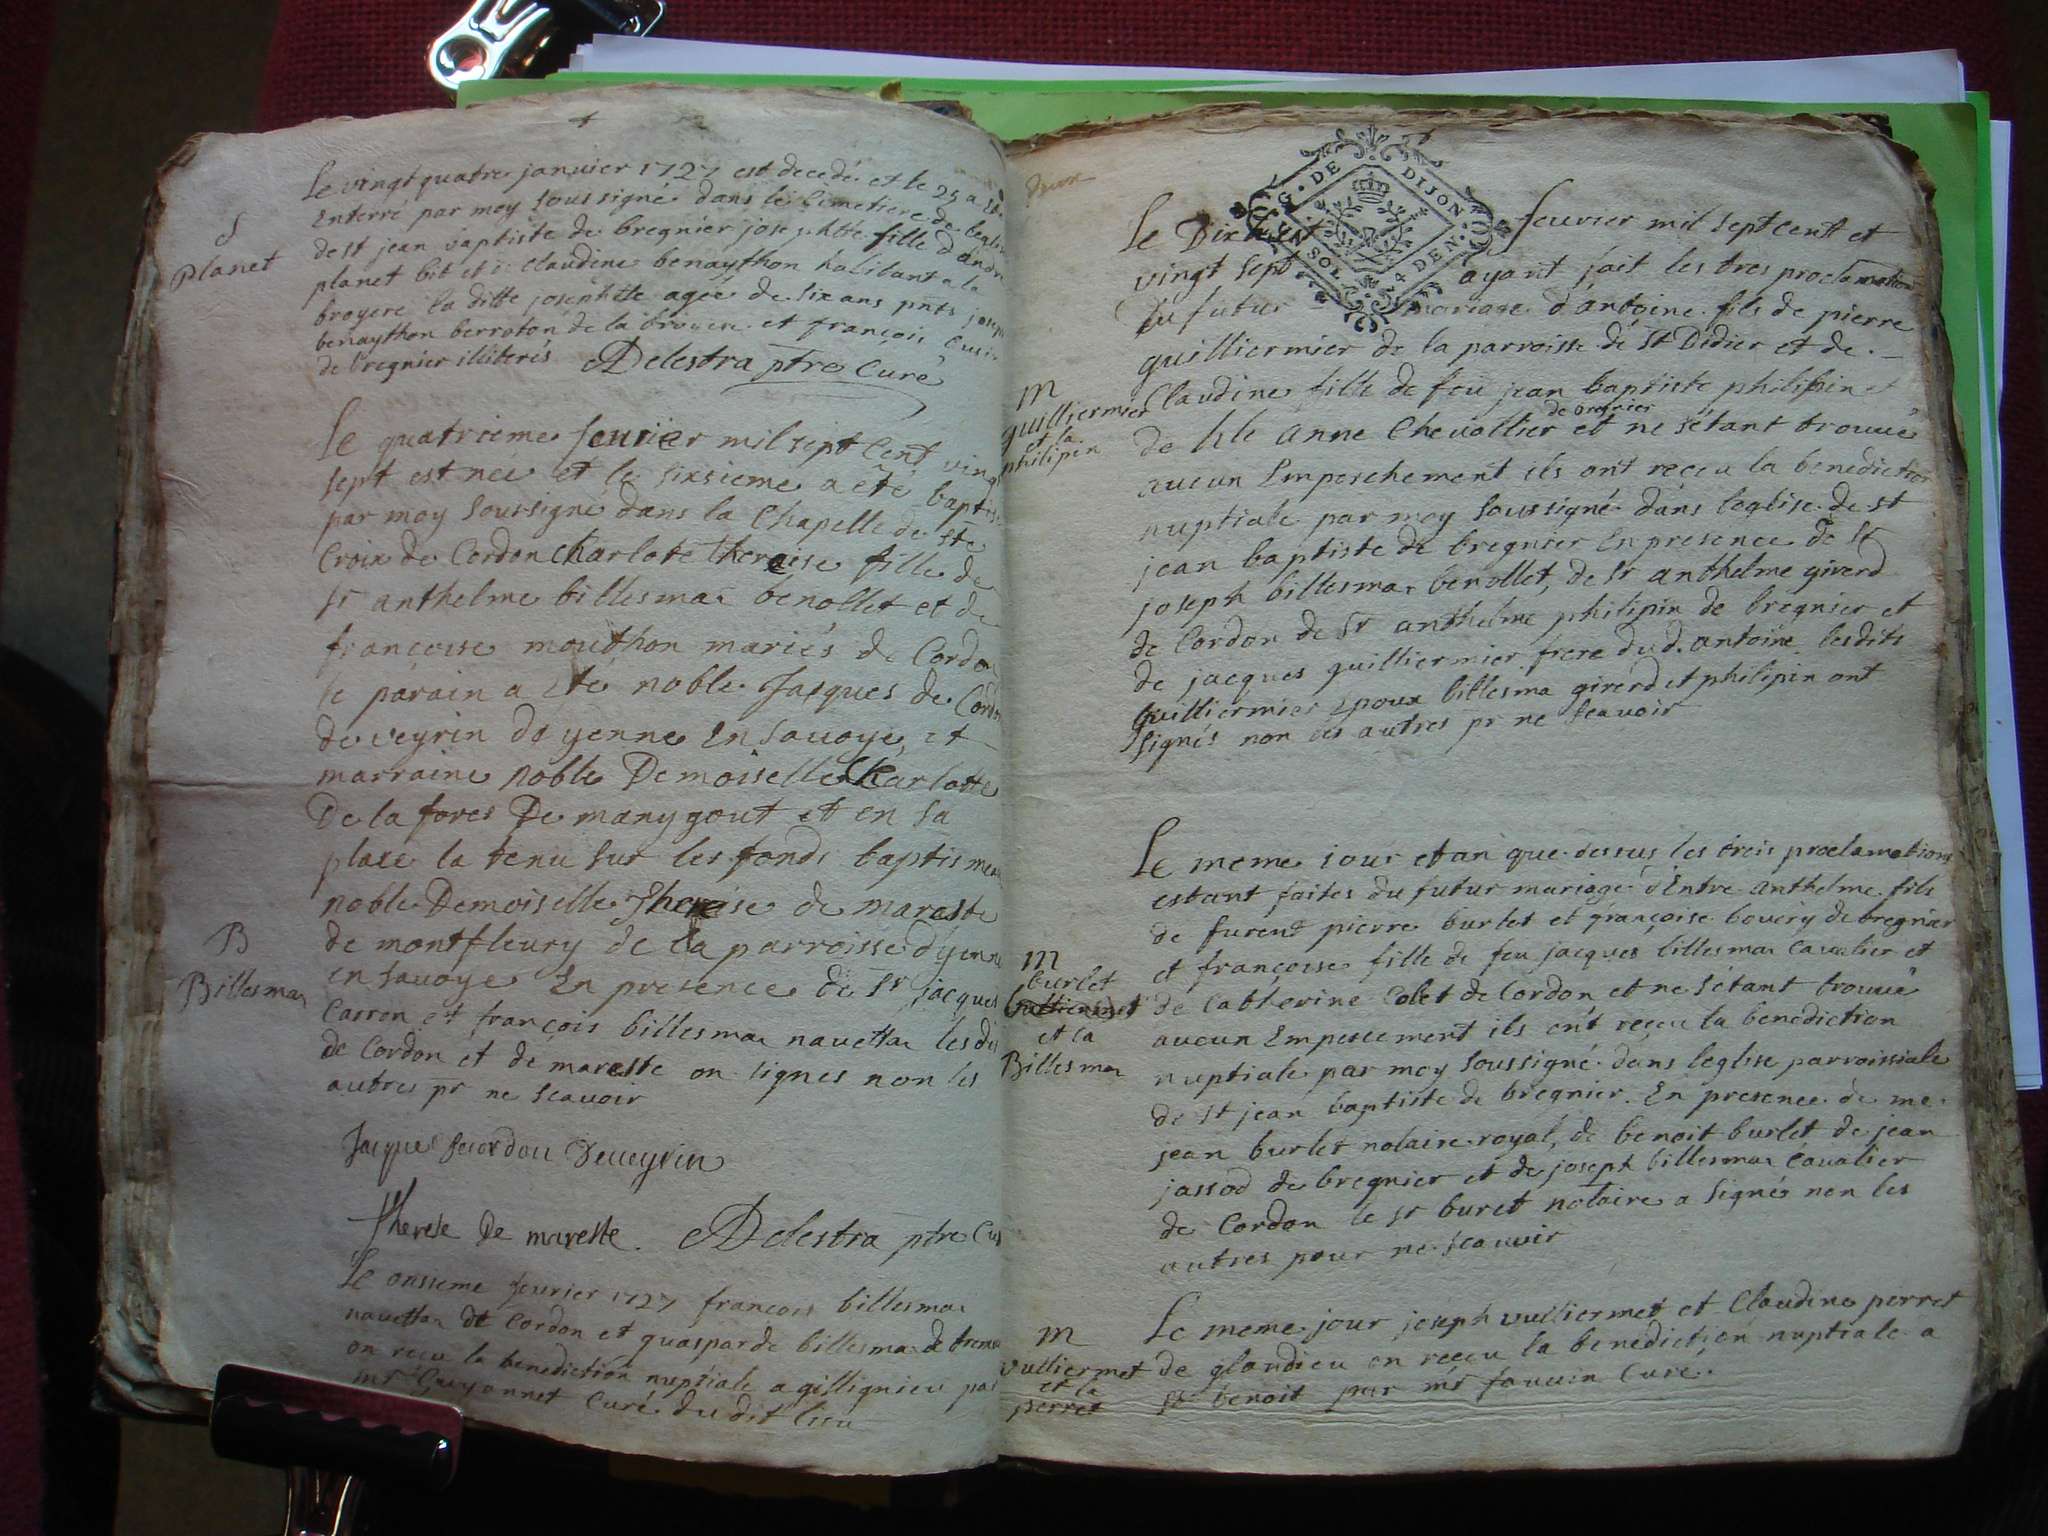 Le vingt quatre janvier 1727 est decedé et le 25 a
Enterré par moy soussigné dans le Cimetiere de leglise
S
Planet
de st jean baptiste de bregnier josephtte fille d'andre
planet bit et de Claudine benaython habitant a la
broyere la ditte josephtte agee de six ans pnts joseph
benaython berroton de la broyere et françois
de bregnier illiterés Delestra ptre Curé
Le quatrieme feurier mil sept Cent vingt
sept est née et le sixsieme a eté baptisé
par moy soussigné dans la Chapelle de ste
Croix de Cordon Charlote theraise fille de
sr anthelme billesmaz benollet et de
françoise mouthon mariés de Cordon
le parain a eté noble Jacques de Cordon
de veyrin dyenne En Savoye et
marraine noble Demoiselle Charlotte
De la fores De manygout et en sa
place la tenu sur les fonds baptismeaux
noble Demoiselle Therese de mareste
de montfleury de la parroisse dyenne
B
Billesmaz
en savoye En presence de sr jacques
Carron et françois billesmaz navettaz lesdits
de Cordon et de mareste on signes non les
autres pr ne scavoir
Jacque decordon deveyrin
therese de mareste. Delestra ptre Curé
Le onsieme feurier 1727 françois billesmaz
navettaz de Cordon et quasparde billesmaz de
on reçu la benediction nuptiale a gillignieu par
mr Guyonnet Curé du dit lieu
deux
G. DE DIJON
UN SOL 4 DEN.
Le Dix feurier mil sept cent et
vingt sept ayant fait les tres proclamations
du futur mariage d'antoine fils de pierre
guilliermier de la parroisse de st Didier et de
m
guilliermier
et la
philipin
Claudine fille de feu jean baptiste philipin et
de bregnier
de hle anne Chevallier et ne sétant trouvé
aucun Empeschement ils ont reçeu la benediction
nuptiale par moy soussigné dans leglise de st
jean baptiste de bregnier En presence de sr
joseph billesmaz benollet, de sr anthelme giverd
de Cordon de sr anthelme philipin de bregnier et
de jacques guilliermier frere dud. antoine lesdits
guilliermier Epoux billesma giverd et philipin ont
signés non les autres pr ne scavoir
Le meme jour et an que dessus les trois proclamations
estant faites du futur mariage dEntre anthelme fils
de furent pierre burlet et françoise bovery de bregnier
m
burlet
et la
Billesmaz
et françoise fille de feu jacques billesmaz Cavalier et
de Catherine Colet de Cordon et ne sétant trouvé
aucun Empescement ils ont reçeu la benediction
nuptiale par moy soussigné dans leglise parroissiale
de st jean baptiste de bregnier. En presence de me
jean burlet notaire royal, de benoit burlet de jean
jassod de bregnier et de joseph billesmaz Cavalier
de Cordon le sr buret notaire a signé non les
autres pour ne scauvoir
m
vulliermet
et la
perret
Le meme jour joseph vulliermet et Claudine perret
de glandieu on reçeu la benediction nuptiale a
st benoit par mr fauvin Curé.